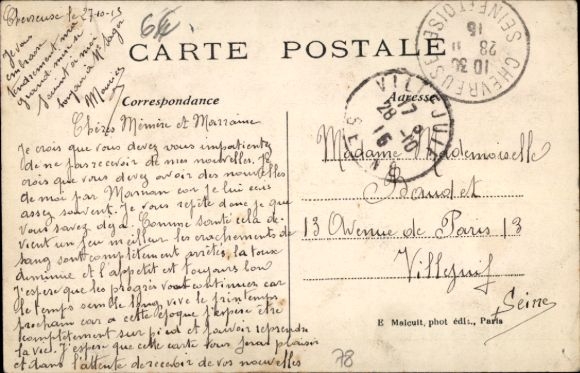 Chevreuse le 27-10-15
64
CARTE POSTALE
Je vous
embrasse
tendrement ma
grand mère se
joint à moi
bonjour à Mr Sager
Maurice
CHEVREUSE
SEINE ET OISE
10 30
28 11
15
VILLEJUIF
SEINE
17
28 -10
15
Correspondance
Adresse
Chères Mémère et Marraine
Je crois que vous devez vous impatientez
de ne pas recevoir de mes nouvelles. Je
crois que vous devez avoir des nouvelles
de moi par Maman car je lui écris
assez souvent. Je vous répète donc je que
vous savez déjà. Comme santé cela de-
vient un peu meilleur les crachements de
sang sont complètement arrêtés, la toux
diminue et l'appétit est toujours bon
J'espère que les progrès vont continuez car
le temps semble long, vive le printemps
prochain car à cette époque j'espère être
complètement sur pied et pouvoir reprendre
la vie. J'espère que cette carte vous ferai plaisir
et dans l'attente de recevoir de vos nouvelles
Madame Mademoiselle
Baudet
13 Avenue de Paris 13
Villejuif
Seine
E Malcuit, phot édit., Paris
78